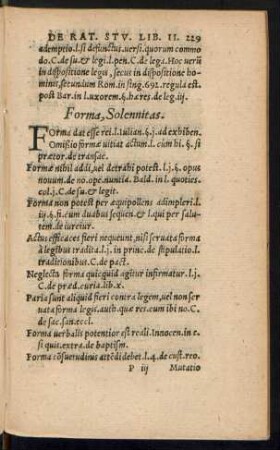 DE RAT. STV. LIB. II. 229
ademptio. l. si defunctus. versi. quorum commo
do. C. de su. & legi. l. pen. C. de lega. Hoc verũ
in dispositione legis, secus in dispositione ho-
minis, secundum Rom. in sing. 692. regula. est.
post Bar. in l. uxorem. §. hæres. de leg. iij.
Forma, Solennitas.
Forma dat esse rei. l. Iulian. §. j. ad exhiben.
Omissio formæ vitiat actum. l. cum hi. §. si
prætor. de transac.
Formæ nihil addi, uel detrahi potest. l. j. §. opus
nouum. de no. ope. nuntia. Bald. in l. quoties.
col. j. C. de su. & legit.
Forma non potest per æquipollens adimpleri. l.
iij. §. fi. cum duabus sequen. & l. qui per salu-
tem. de iureiur.
Actus efficaces fieri nequeunt, nisi seruata forma
à legibus tradita. l. j. in princ. de stipulatio. l.
traditionibus. C. de pact.
Neglecta forma quicquid agitur infirmatur. l. j.
C. de præd. curia. lib. x.
Paria sunt aliquid fieri contra legem, uel non ser
uata forma legis. auth. quæ res. cum ibi no. C.
de sac. san. eccl.
Forma uerbalis potentior est reali. Innocen. in c.
si quis. extra. de baptism.
Forma cõsuetudinis attẽdi debet. l. 4. de cust. reo.
P iij Mutatio